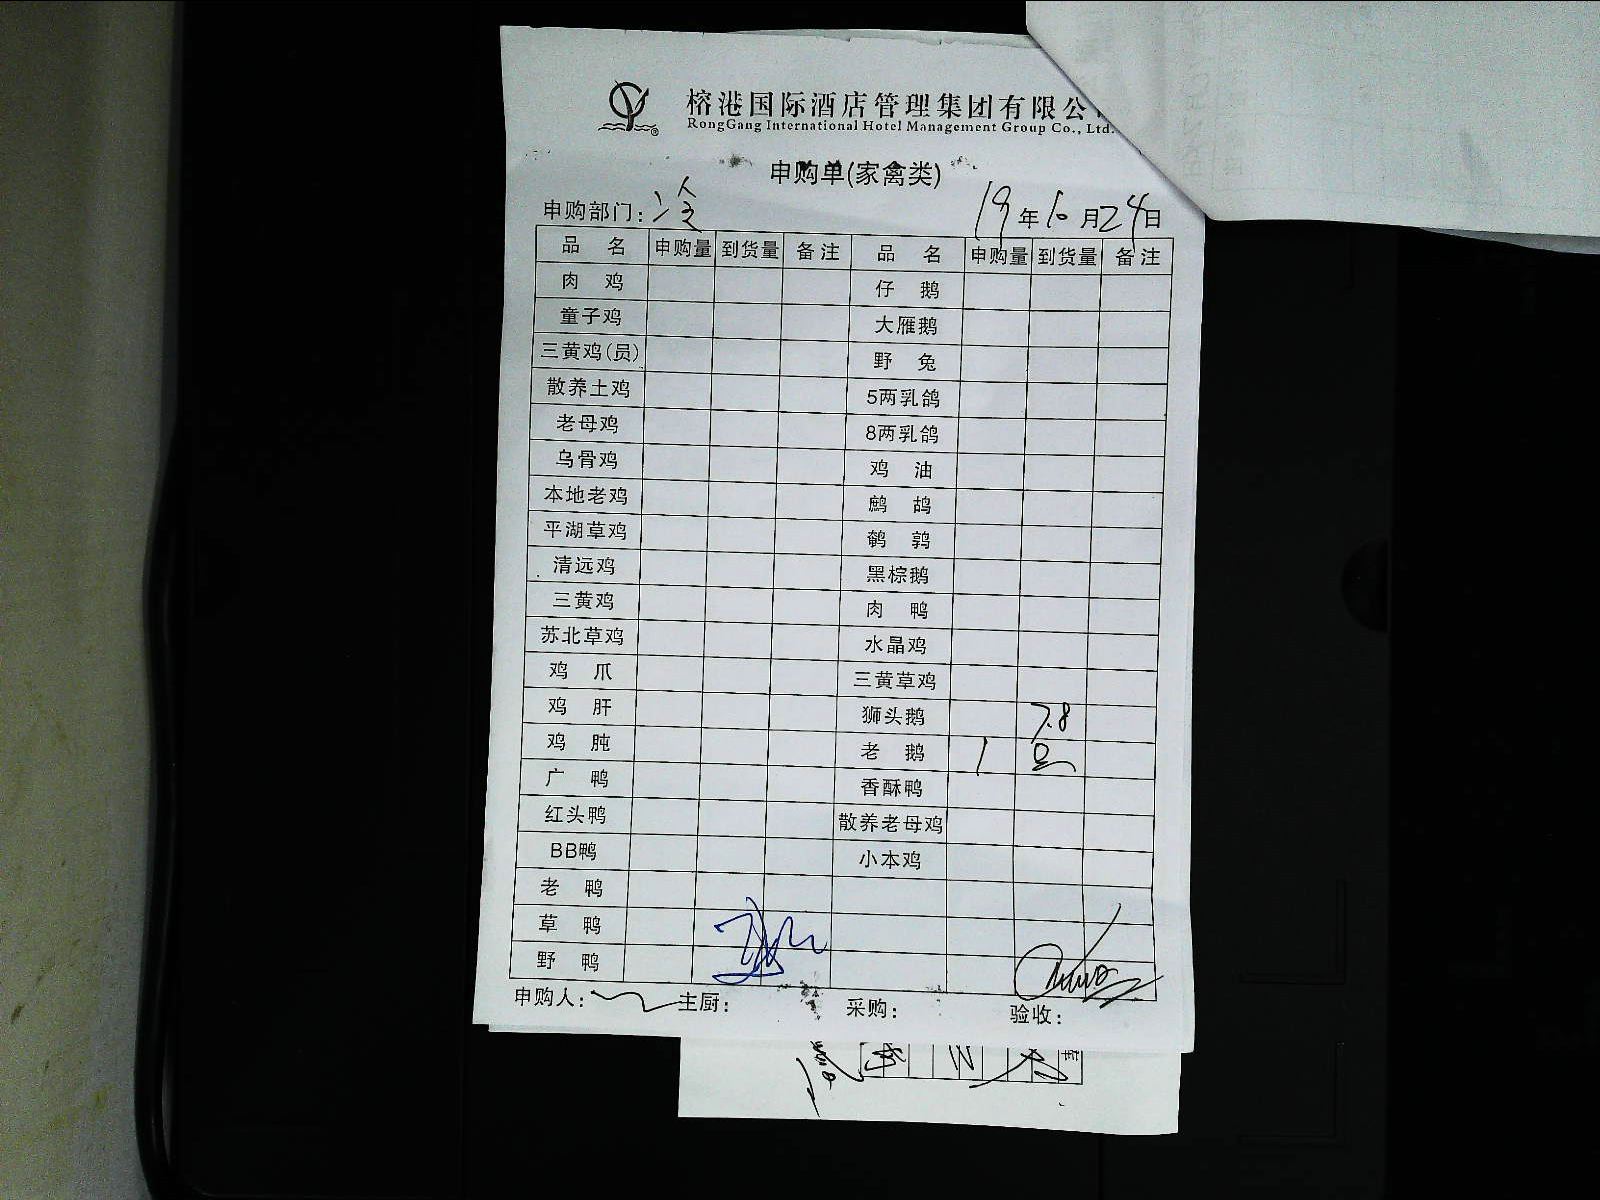 榕港国际酒店管理集团有限公
RongGang International Hotel Management Group Co., Ltd.
申购单(家禽类)
申购部门: 冷 19年10月24日
品 名 申购量 到货量 备注 品 名 申购量 到货量 备注
肉 鸡 仔 鹅
童子鸡 大雁鹅
三黄鸡(员) 野 兔
散养土鸡 5两乳鸽
老母鸡 8两乳鸽
乌骨鸡 鸡 油
本地老鸡 鹧 鸪
平湖草鸡 鹌 鹑
清远鸡 黑棕鹅
三黄鸡 肉 鸭
苏北草鸡 水晶鸡
鸡 爪 三黄草鸡
鸡 肝 狮头鹅 7.8
鸡 肫 老 鹅 1
广 鸭 香酥鸭
红头鸭 散养老母鸡
BB鸭 小本鸡
老 鸭
草 鸭
野 鸭
申购人: 主厨: 采购: 验收: